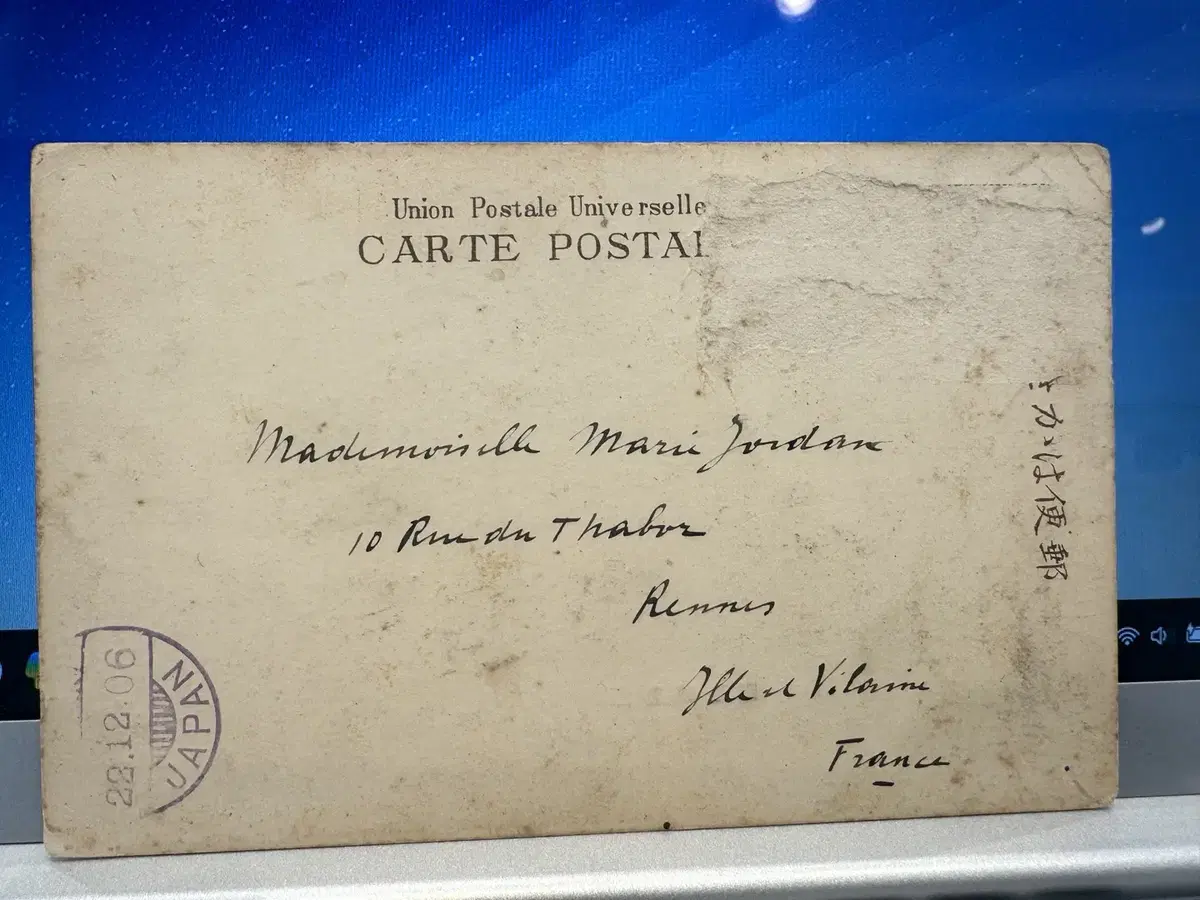 Union Postale Universelle
CARTE POSTAL
Mademoiselle Marie Jordan
10 Rue du Thabor
Rennes
Ille et Vilaine
France
郵便はがき
22.12.06
JAPAN